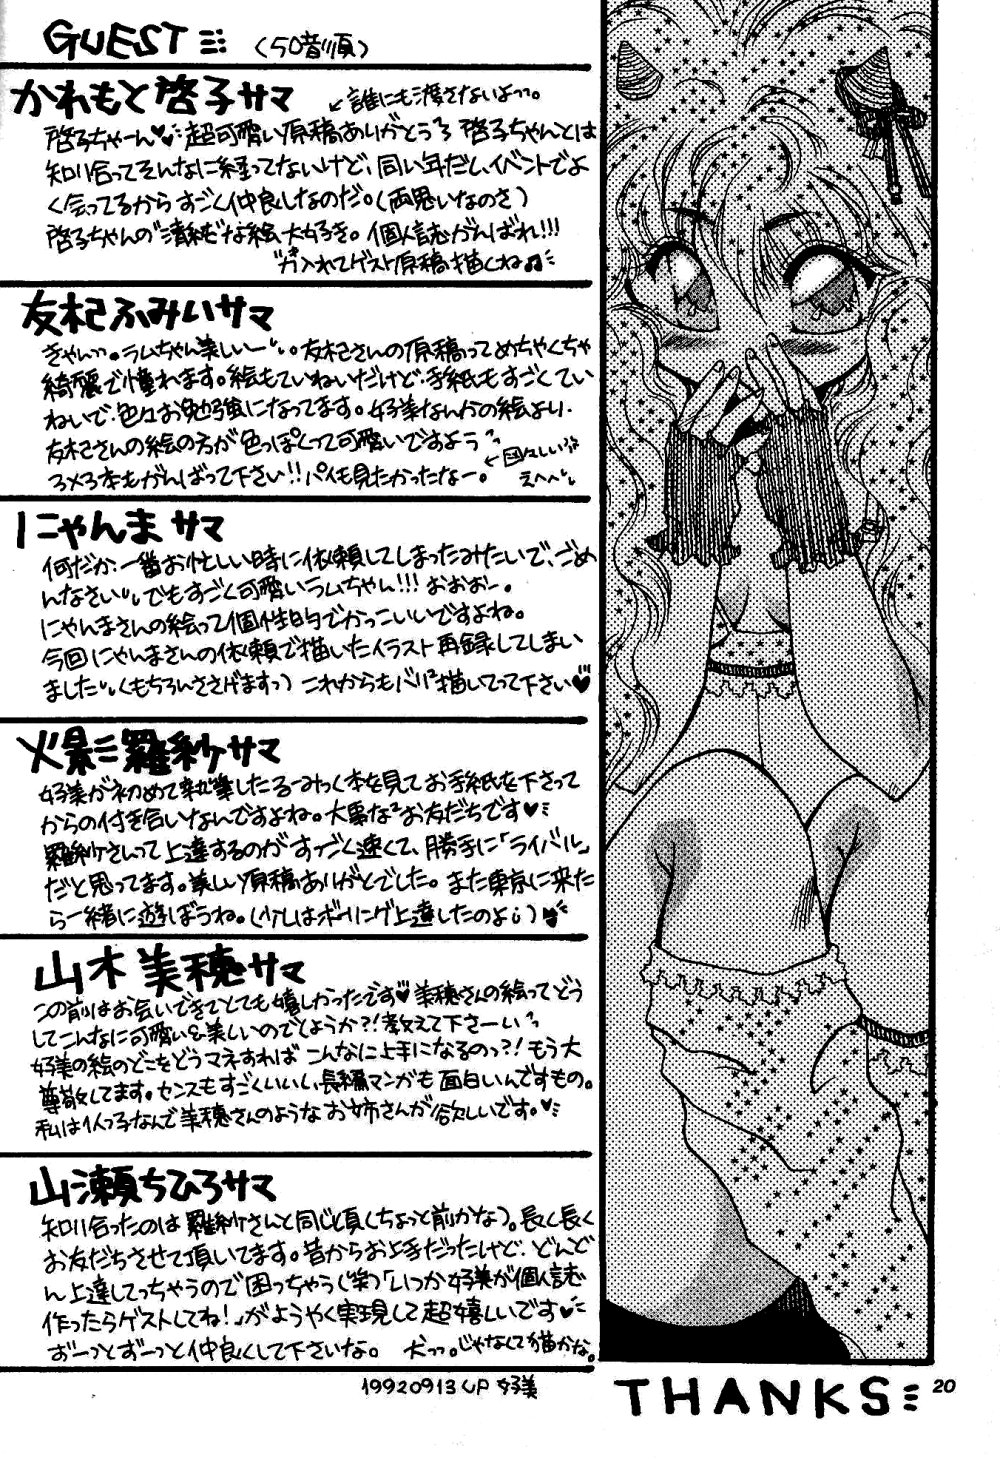 GUEST (50音順)
かわもと啓子サマ ↙誰にも渡さないよっ。
啓子ちゃーん♥超可愛い原稿ありがとうろ 啓子ちゃんとは
知り合ってそんなに経ってないけど、同い年だし、イベントでよ
く会ってるからすごく仲良しなのだ。(両思いなのさ)
啓子ちゃんの"清純"な絵大好き。個人誌がんばれ!!!
入れてゲスト原稿描くね♫
友杞ふみいサマ
きゃんっ。ラムちゃん美しいー。友杞さんの原稿ってめちゃくちゃ
綺麗で憧れます。絵もていねいだけど、手紙もすごくてい
ねいで、色々お勉強になってます。好美なんかの絵より、
友杞さんの絵の方が色っぽくって可愛いですよう
ろメろ本もがんばって下さい!!パイも見たかったなー。 ↙図々しい えへへ
にゃんまサマ
何だか、一番お忙しい時に依頼してしまったみたいで、ごめ
んなさい、でもすごく可愛いラムちゃん!!!おおおー。
にゃんまさんの絵って個性的でかっこいいですよね。
今回にゃんまさんの依頼で描いたイラスト再録してしまい
ました、(もちろんささげますっ)これからもバリバリ描いてって下さい♥
火景羅紗サマ
好美が初めて執筆したるーみっく本を見てお手紙を下さって
からの付き合いなんですよね。大事な"お友だちです♥
羅紗さんって上達するのがすっごく速くて、勝手に「ライバル」
だと思ってます。美しい原稿ありがとでした。また東京に来た
ら一緒に遊ぼうね。(少しはボーリング上達したのよ)
山本美穂サマ
この前はお会いできてとても嬉しかったです♥美穂さんの絵ってどう
してこんなに可愛い&美しいのでしょうか?!教えて下さーい
好美の絵のどこをどうマネすればこんなに上手になるのっ?!もう大
尊敬してます。センスもすごくいいし、長編マンガも面白いんですもの。
私は1人っ子なんで美穂さんのようなお姉さんが欲しいです。♥
山瀬ちひろサマ
知り合ったのは羅紗さんと同じ頃(ちょっと前かな)。長く長く
お友だちさせて頂いてます。昔からお上手だったけど、どんど
ん上達してっちゃうので困っちゃう(笑)「いつか好美が個人誌
作ったらゲストしてね!」がようやく実現して超嬉しいです♥
ずーっとずーっと仲良くして下さいな。 犬っ。じゃなくて猫かな。
19920913 UP 好美
THANKS
20